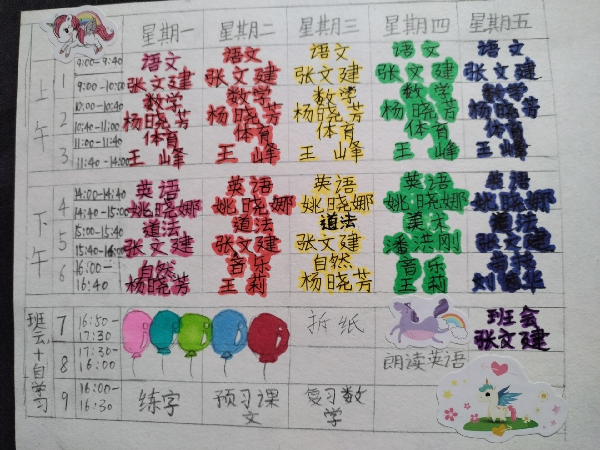 星期一 星期二 星期三 星期四 星期五
上午
9:00-9:40 语文 语文 语文 语文 语文
1 9:00-10:00 张文建 张文建 张文建 张文建 张文建
10:00-10:40 数学 数学 数学 数学 数学
2 10:40-11:00 杨晓芳 杨晓芳 杨晓芳 杨晓芳 杨晓芳
11:00-11:40 体育 体育 体育 体育 体育
3 11:40-14:00 王峰 王峰 王峰 王峰 王峰
下午
4 14:00-14:40 英语 英语 英语 英语 英语
14:40-15:00 姚晓娜 姚晓娜 姚晓娜 姚晓娜 姚晓娜
5 15:00-15:40 道法 道法 道法 美术 道法
15:40-16:00 张文建 张文建 张文建 潘洪刚 张文建
6 16:00- 自然 音乐 自然 音乐
16:40 杨晓芳 王莉 杨晓芳 王莉
班会+自学习
7 16:50- 折纸 班会
17:30 张文建
8 17:30- 朗读英语
16:00
9 16:00- 练字 预习课 复习数
16:30 文 学